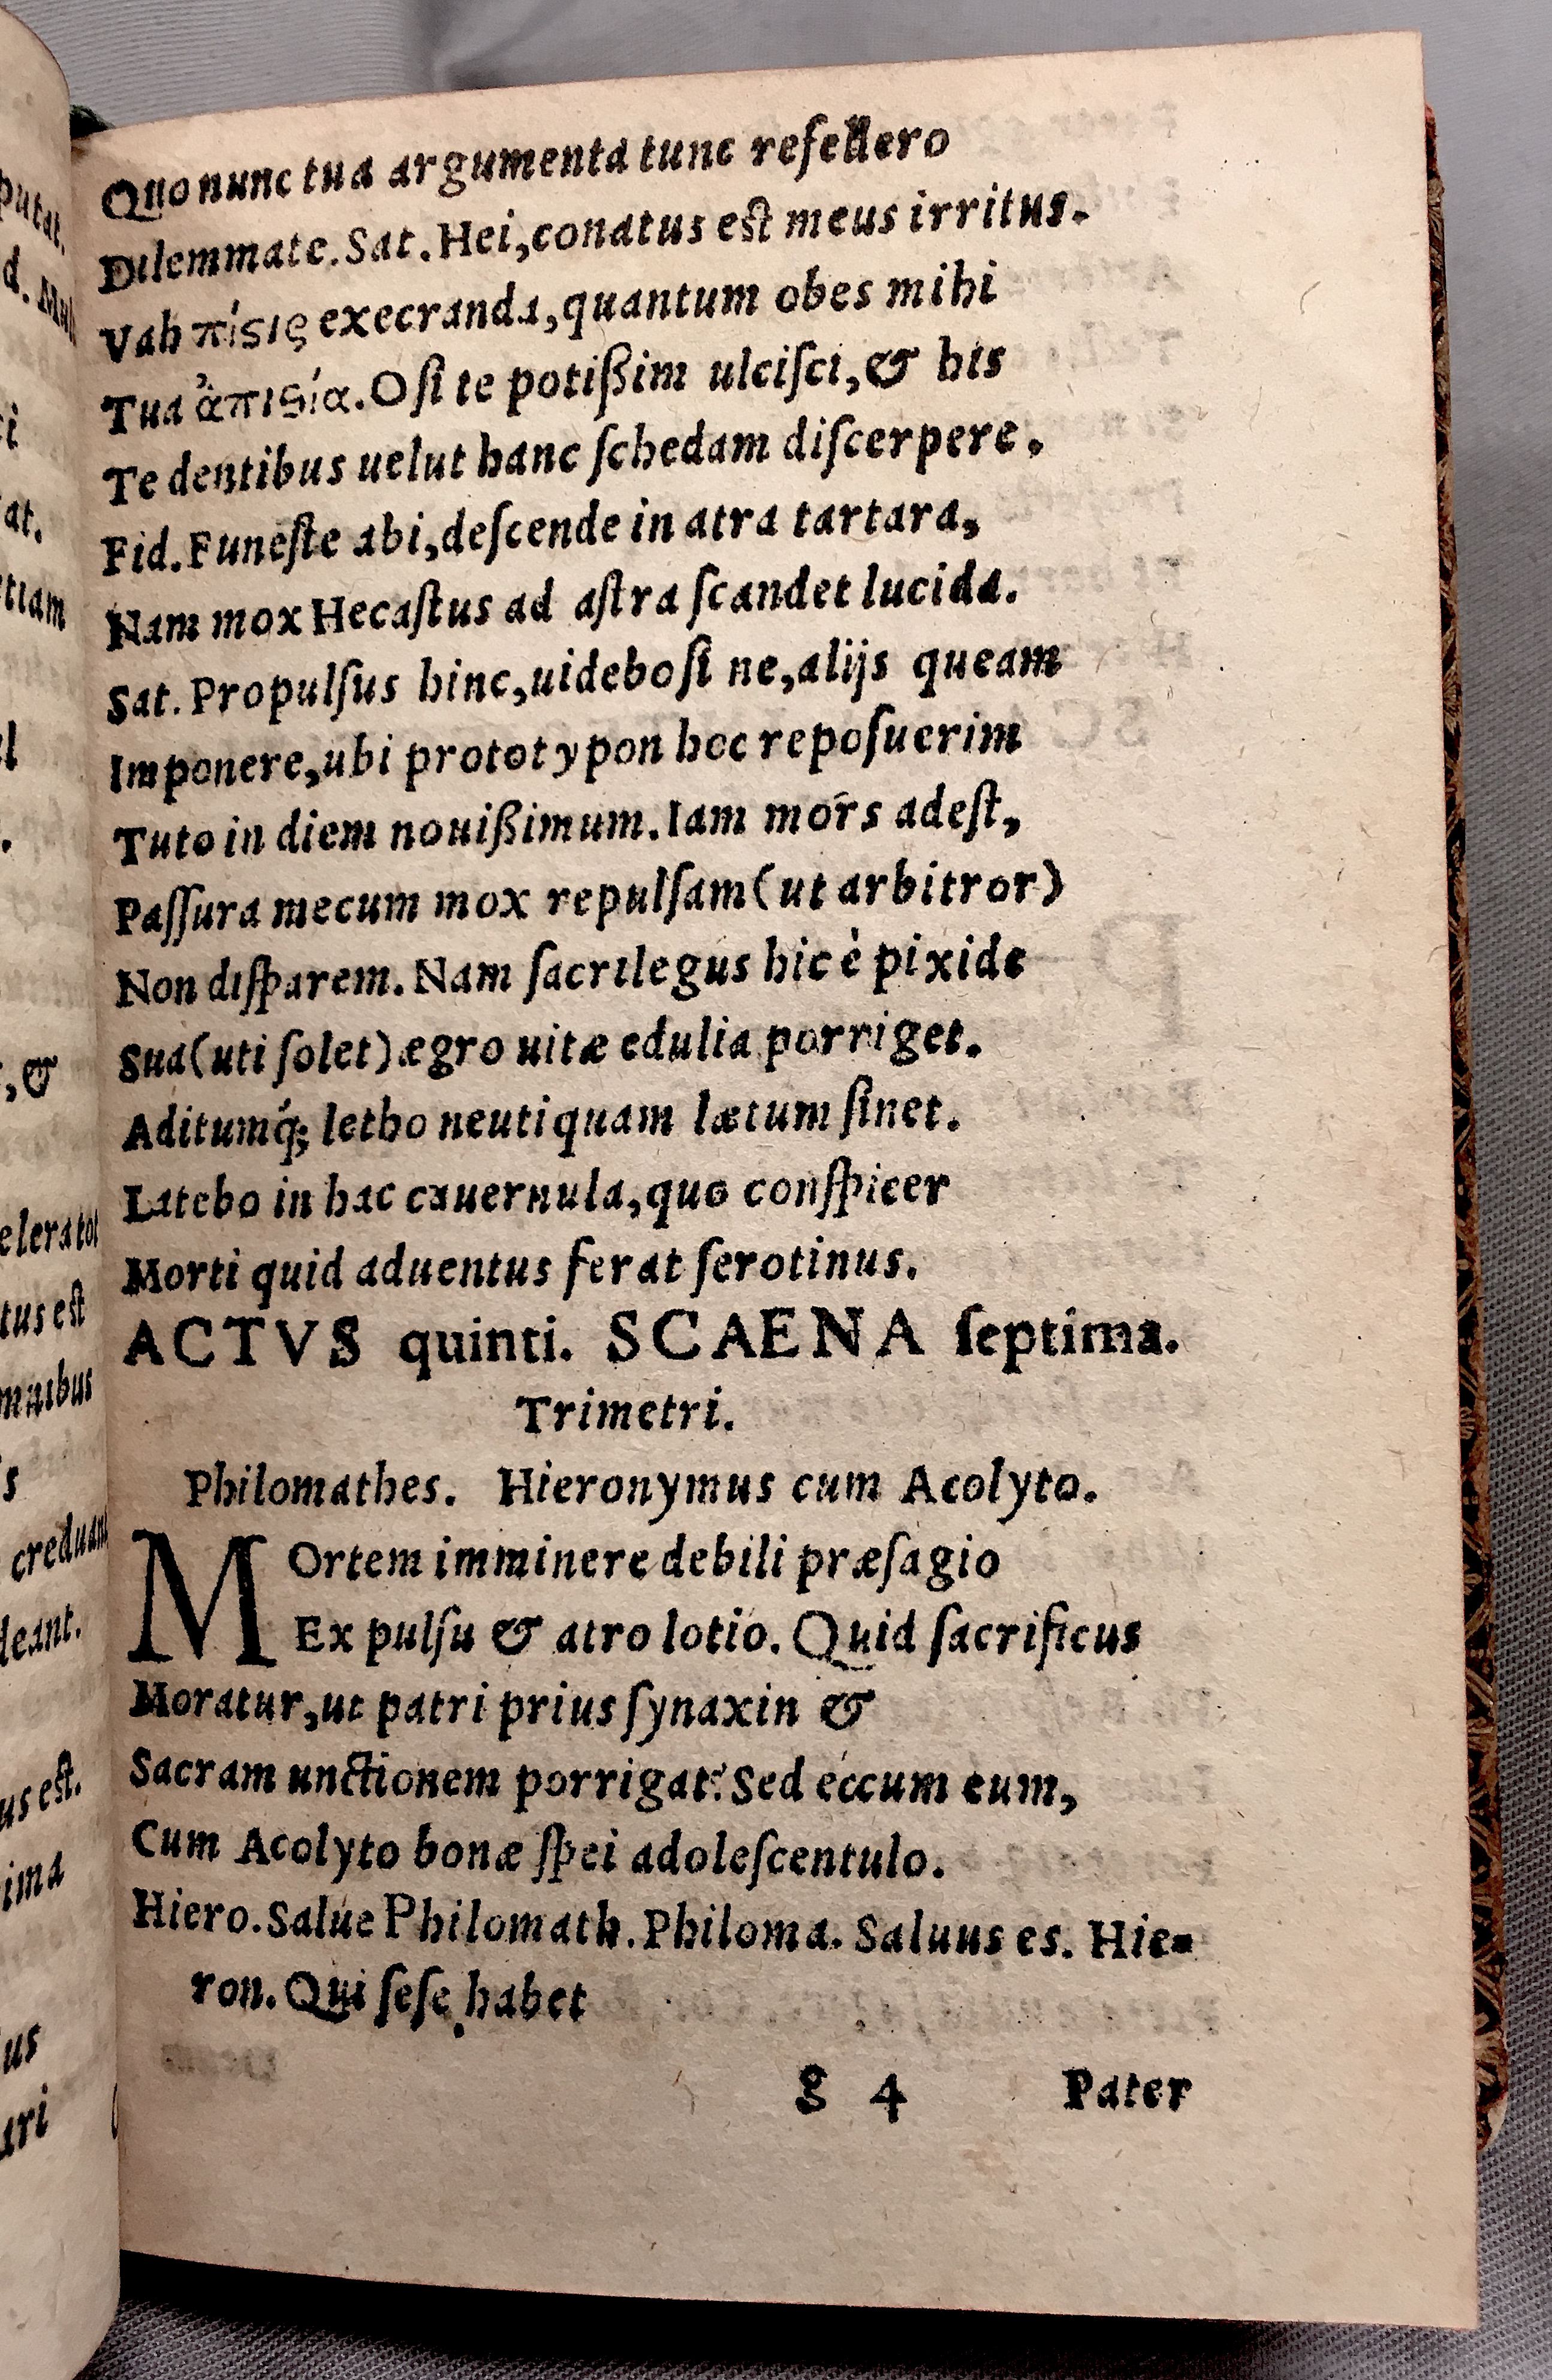 Quo nunc tua argumenta tunc refellero
Dilemmate. Sat. Hei, conatus est meus irritus.
Vah πίϛις execranda, quantum obes mihi
Tua ἀπιϛία. O ſi te potißim ulciſci, & his
Te dentibus uelut hanc ſchedam diſcerpere.
Fid. Funeſte abi, deſcende in atra tartara,
Nam mox Hecaſtus ad aſtra ſcandet lucida.
Sat. Propulſus hinc, uidebo ſi ne, alijs queam
Imponere, ubi prototypon hoc repoſuerim
Tuto in diem nouißimum. Iam mors adeſt,
Paſſura mecum mox repulſam (ut arbitror)
Non diſparem. Nam ſacrilegus hic è pixide
Sua (uti ſolet) ægro uitæ edulia porriget.
Aditumq́; letho neutiquam lætum ſinet.
Latebo in hac cauernula, quo conſpicer
Morti quid aduentus ferat ſerotinus.
ACTVS quinti. SCAENA ſeptima.
Trimetri.
Philomathes. Hieronymus cum Acolyto.
MOrtem imminere debili præſagio
Ex pulſu & atro lotio. Quid ſacrificus
Moratur, ut patri prius ſynaxin &
Sacram unctionem porrigat? Sed eccum eum,
Cum Acolyto bonæ ſpei adoleſcentulo.
Hiero. Salue Philomath. Philoma. Saluus es. Hie-
ron. Qui ſeſe habet
g 4 Pater